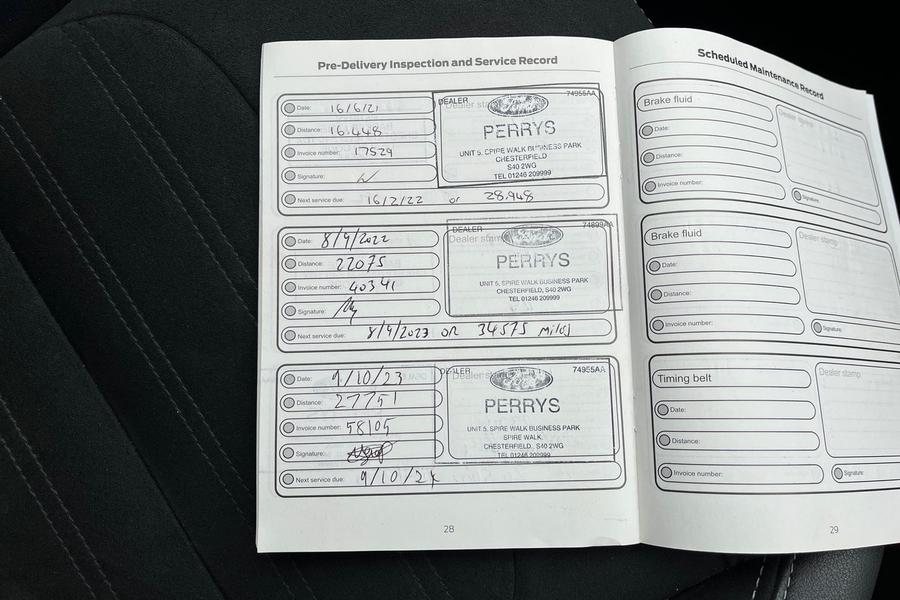 Pre-Delivery Inspection and Service Record
Date: 16/6/21
Distance: 16.448
Invoice number: 17529
Signature:
Next service due: 16/2/22 or 28.948
DEALER 74955AA
Dealer stamp
PERRYS
UNIT 5. SPIRE WALK BUSINESS PARK
CHESTERFIELD
S40 2WG
TEL 01246 209999
Date: 8/9/2022
Distance: 22075
Invoice number: 40341
Signature:
Next service due: 8/9/2023 OR 34575 miles
DEALER
Dealer stamp
PERRYS
UNIT 5, SPIRE WALK BUSINESS PARK
CHESTERFIELD, S40 2WG
TEL 01246 209999
Date: 9/10/23
Distance: 27751
Invoice number: 58105
Signature:
Next service due: 9/10/24
DEALER 74955AA
Dealer stamp
PERRYS
UNIT 5. SPIRE WALK BUSINESS PARK
SPIRE WALK,
CHESTERFIELD, S40 2WG
TEL 01246 209999
28
Scheduled Maintenance Record
Brake fluid
Dealer stamp
Date:
Distance:
Invoice number:
Signature:
Brake fluid
Dealer stamp
Date:
Distance:
Invoice number:
Signature:
Timing belt
Dealer stamp
Date:
Distance:
Invoice number:
Signature:
29